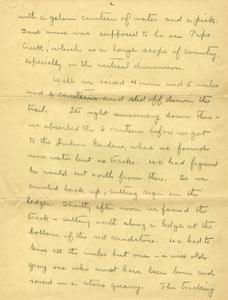 with a galvn canteen of water and a pick.
Said mine was supposed to be on Pipe
Creek, which is a large scope of country,
especially in the vertical dimension.
Well we raised 4 men and 5 mules
and 6 canteens and slid off down the
trail. Its right summery down there -
we absorbed the 6 canteens before we got
to the Indian Gardens, where we found
more water but no tracks. We had figured
he would cut north from there. So we
crawled back up, cutting sign on the
ledges. Shortly after noon we found the
track - cutting north along a ledge at the
bottom of the red sandstone. We had to
leave all the mules but one - a wise old
gray one who must have been born and
raised in a stone quarry. The tracking